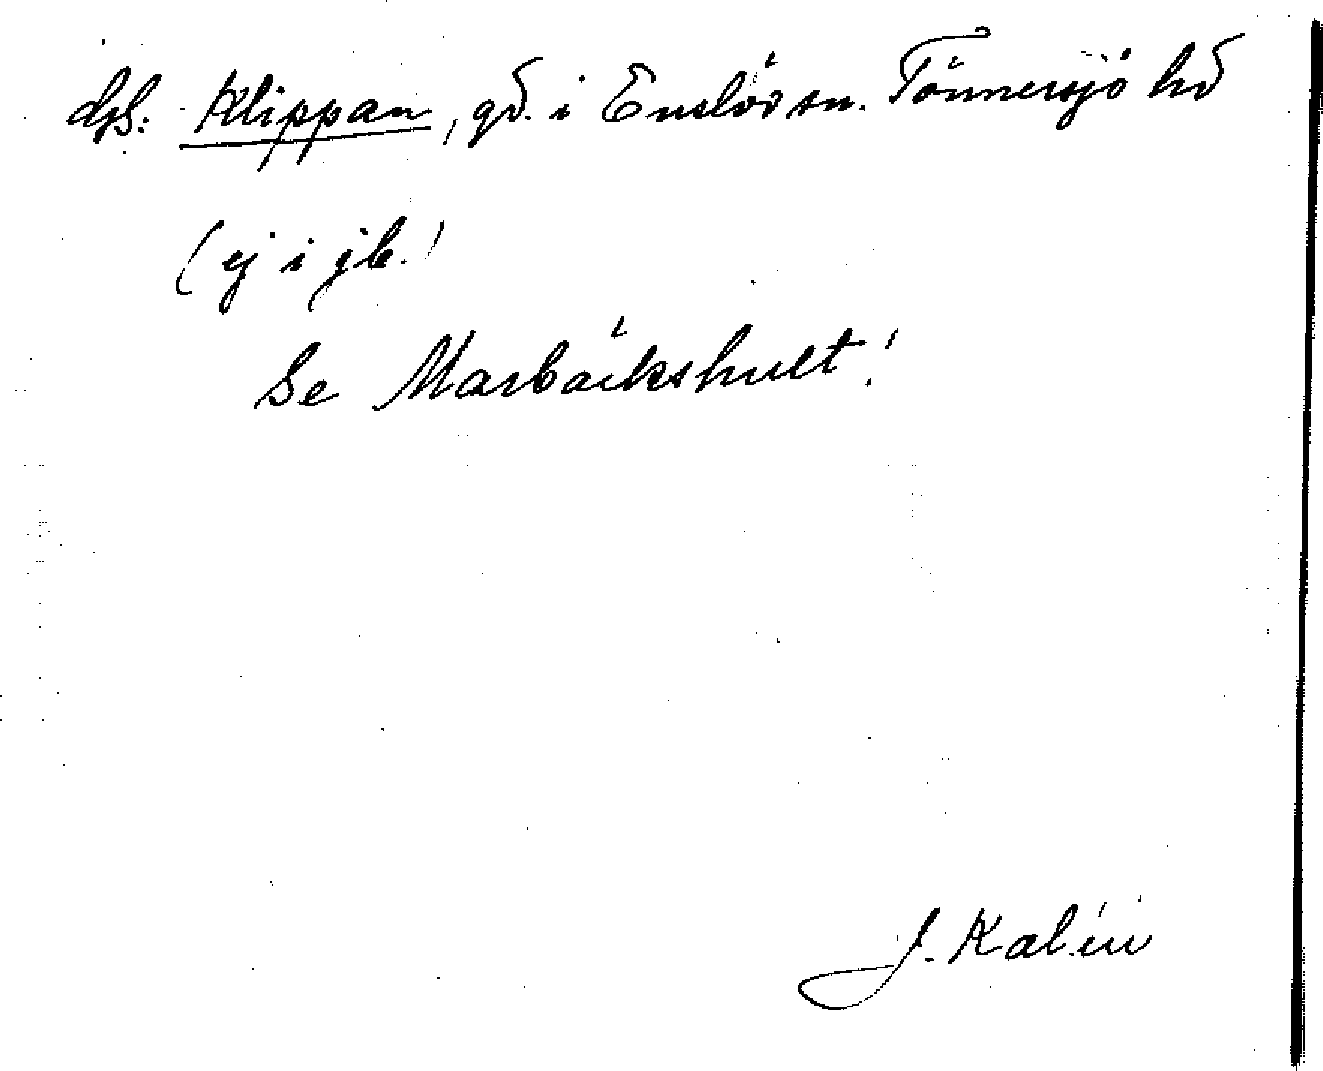 Klippan, gd. i Enslöv sn. Tönnersjö hd
(ej i jb.)
Se Marbäckshult!
J. Kalén